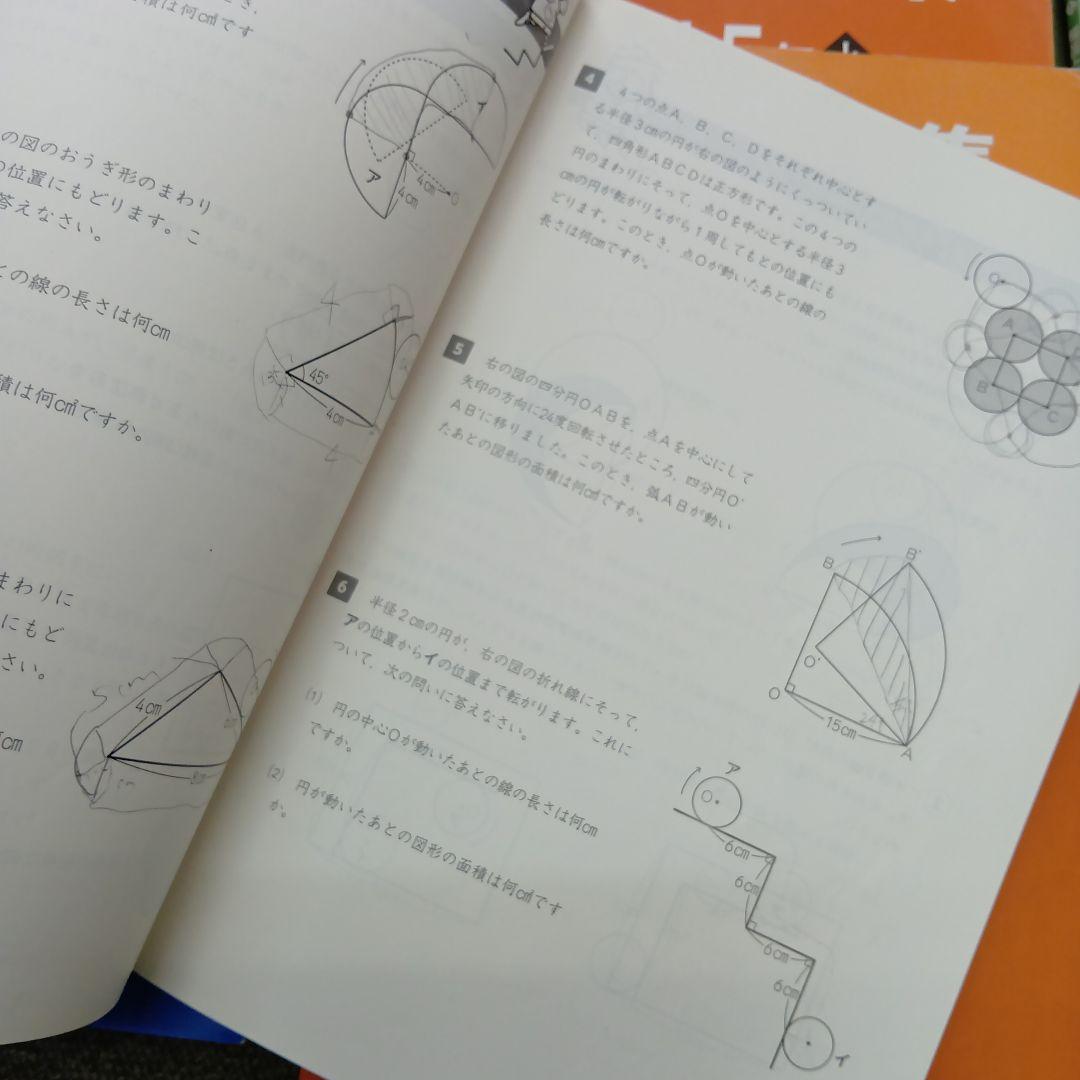 積は何㎠です
の図のおうぎ形のまわり
の位置にもどります。こ
答えなさい。
との線の長さは何cm
積は何㎠ですか。
まわりに
にもど
さい。
cm
ア
イ
4cm
4cm
O
4
45°
4cm
5cm
4cm
4
4つの点A、B、C、Dをそれぞれ中心とす
る半径3cmの円が右の図のようにくっついてい
て、四角形ABCDは正方形です。この4つの
円のまわりにそって、点Oを中心とする半径3
cmの円が転がりながら1周してもとの位置にも
どります。このとき、点Oが動いたあとの線の
長さは何cmですか。
O
A
B
C
5
右の図の四分円OABを、点Aを中心にして
矢印の方向に24度回転させたところ、四分円O'
AB'に移りました。このとき、弧ABが動い
たあとの図形の面積は何㎠ですか。
B
B'
O'
O
15cm
24
A
6
半径2cmの円が、右の図の折れ線にそって、
アの位置からイの位置まで転がります。これに
ついて、次の問いに答えなさい。
(1) 円の中心Oが動いたあとの線の長さは何cm
ですか。
(2) 円が動いたあとの図形の面積は何㎠です
か。
ア
O
6cm
6cm
6cm
6cm
イ